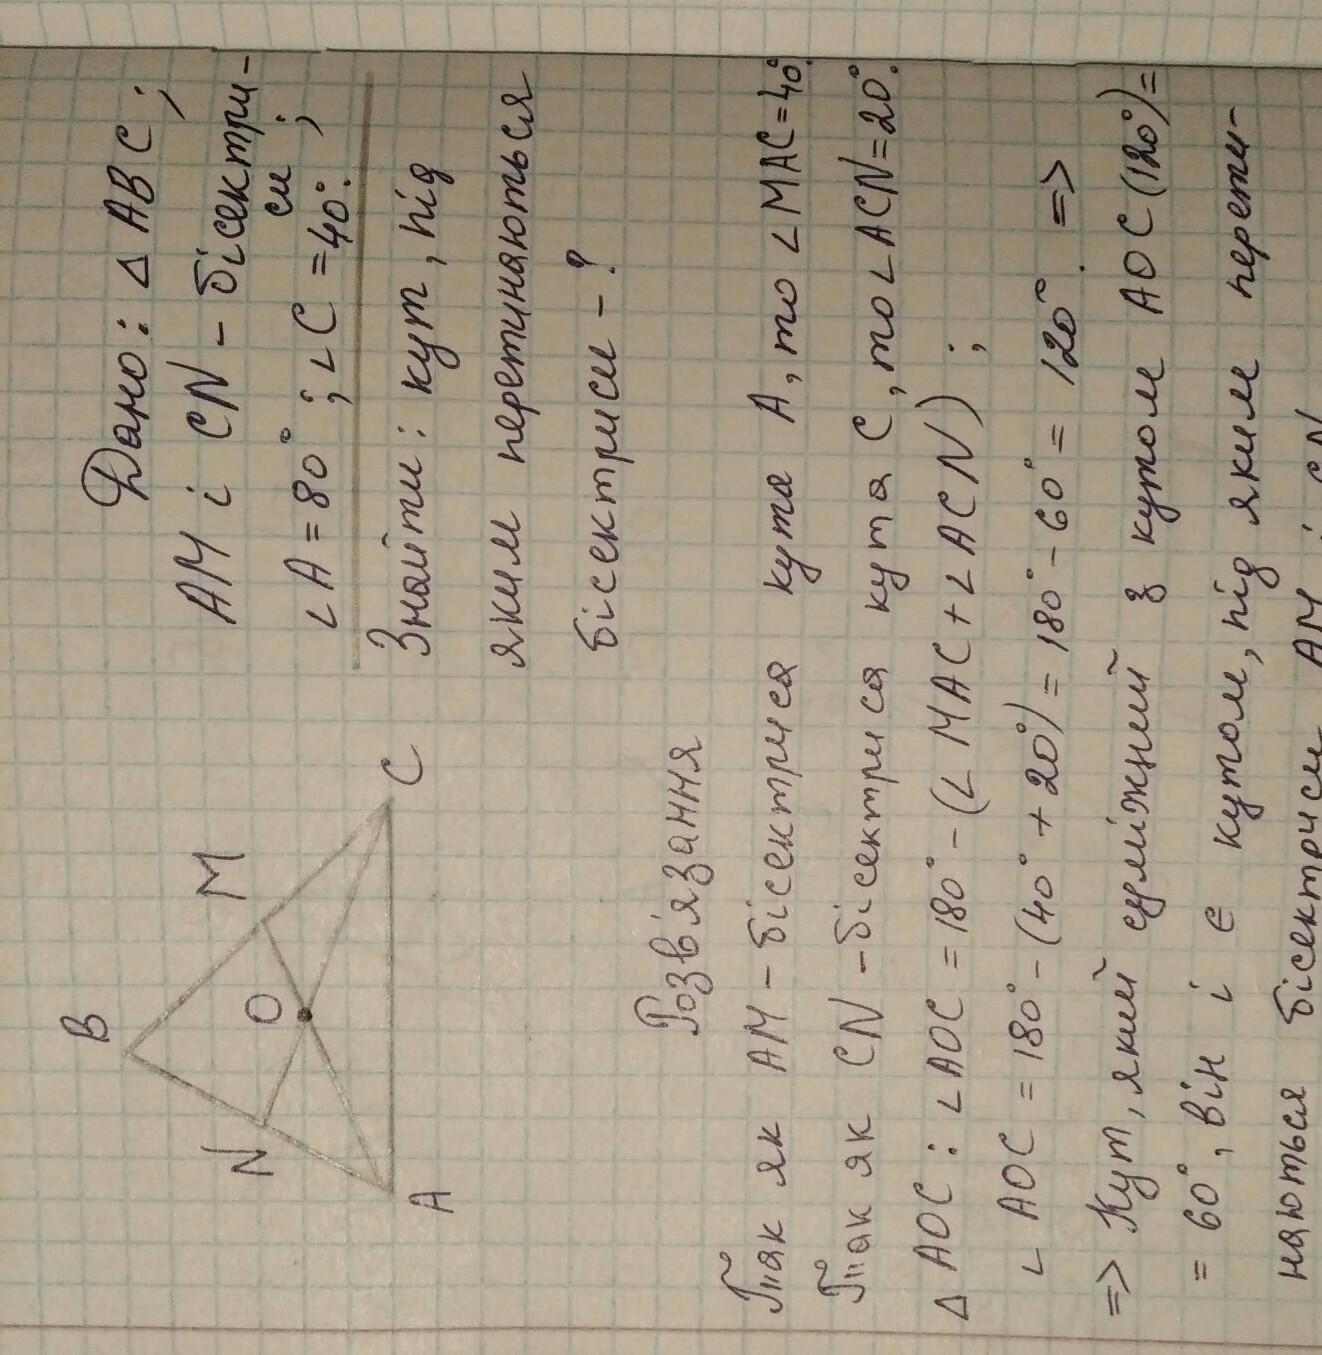 Дано: Δ ABC;
AM і CN – бісектри-
си;
∠A = 80°; ∠C = 40°.
Знайти: кут, під
яким перетинаються
бісектриси – ?
B
N
O
M
A
C
Розв'язання
Так як AM – бісектриса кута A, то ∠MAC = 40°.
Так як CN – бісектриса кута C, то ∠ACN = 20°.
Δ AOC: ∠AOC = 180° – (∠MAC + ∠ACN);
∠AOC = 180° – (40° + 20°) = 180° – 60° = 120°. =>
=> Кут, який суміжний з кутом AOC (120°) =
= 60°, він і є кутом, під яким перети-
наються бісектриси AM і CN